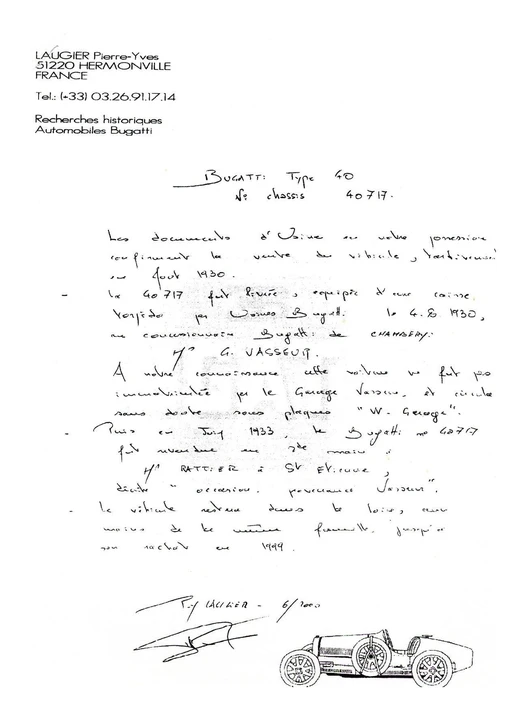 LAUGIER Pierre-Yves
51220 HERMONVILLE
FRANCE
Tel.: (+33) 03.26.91.17.14
Recherches historiques
Automobiles Bugatti
BUGATTI Type 40
N° chassis 40717.
Les documents d'Usine en notre possession
confirment la vente du véhicule,
en Août 1930.
- La 40717 fut livrée, équipée d'une caisse
torpédo par Usines Bugatti le 4.8.1930,
au concessionnaire Bugatti de CHAMBERY:
Mr G. VASSEUR.
A notre connaissance cette voiture ne fut pas
immatriculée par le Garage Vasseur, et circula
sans doute sous plaques "W. Garage".
- Puis en Juin 1933, la Bugatti n° 40717
fut revendue en 2de main à
Mr RATTIER à St Etienne,
dite "occasion, provenance Vasseur".
- Le véhicule restera dans la Loire, aux
mains de la même famille, jusqu'à
son rachat en 1999.
P.Y LAUGIER - 6/2000